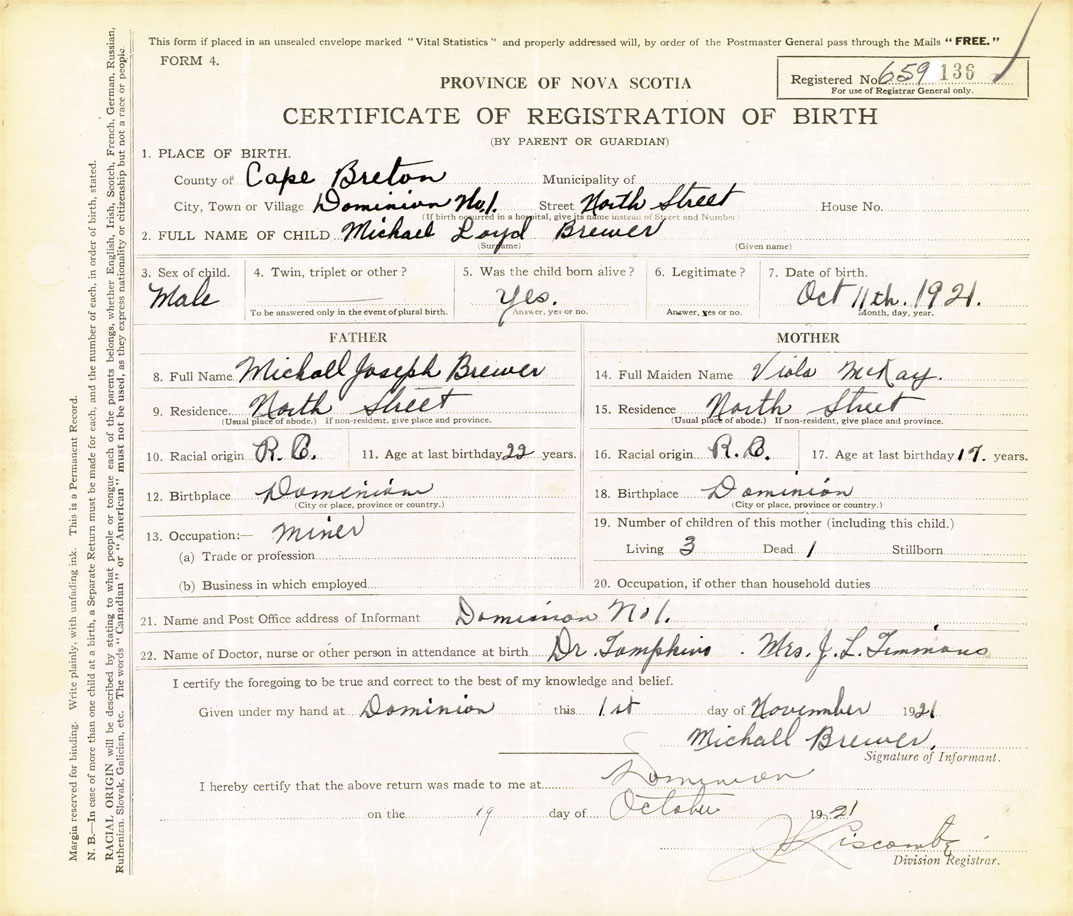 This form if placed in an unsealed envelope marked "Vital Statistics" and properly addressed will, by order of the Postmaster General pass through the Mails "FREE."
FORM 4.
Registered No. 659 136
For use of Registrar General only.
PROVINCE OF NOVA SCOTIA
CERTIFICATE OF REGISTRATION OF BIRTH
(BY PARENT OR GUARDIAN)
1. PLACE OF BIRTH.
County of Cape Breton Municipality of
City, Town or Village Dominion No 1. Street North Street House No.
(If birth occurred in a hospital, give its name instead of Street and Number)
2. FULL NAME OF CHILD Michael Loyd Brewer
(Surname) (Given name)
3. Sex of child. 4. Twin, triplet or other? 5. Was the child born alive? 6. Legitimate? 7. Date of birth.
Male Yes. Oct 11th. 1921.
To be answered only in the event of plural birth. Answer, yes or no. Answer, yes or no. Month, day, year.
FATHER MOTHER
8. Full Name Michall Joseph Brewer 14. Full Maiden Name Viola McKay.
9. Residence North Street 15. Residence North Street
(Usual place of abode.) If non-resident, give place and province. (Usual place of abode.) If non-resident, give place and province.
10. Racial origin R.C. 11. Age at last birthday 22 years. 16. Racial origin R.C. 17. Age at last birthday years.
12. Birthplace Dominion 18. Birthplace Dominion
(City or place, province or country.) (City or place, province or country.)
13. Occupation:— Miner 19. Number of children of this mother (including this child.)
(a) Trade or profession Living 3 Dead 1 Stillborn
(b) Business in which employed 20. Occupation, if other than household duties
21. Name and Post Office address of Informant Dominion No 1.
22. Name of Doctor, nurse or other person in attendance at birth Dr. Tompkins . Mrs. J. L. Timmons
I certify the foregoing to be true and correct to the best of my knowledge and belief.
Given under my hand at Dominion this 1st day of November 1921
Michall Brewer.
Signature of Informant.
I hereby certify that the above return was made to me at Dominion
on the 19 day of October 1921
Division Registrar.
Margin reserved for binding. Write plainly, with unfading ink. This is a Permanent Record.
N. B.—In case of more than one child at a birth, a Separate Return must be made for each, and the number of each, in order of birth, stated.
RACIAL ORIGIN will be described by stating to what people or tongue each of the parents belongs, whether English, Irish, Scotch, French, German, Russian,
Ruthenian, Slovak, Galician, etc. The words "Canadian" or "American" must not be used, as they express nationality or citizenship but not a race or people